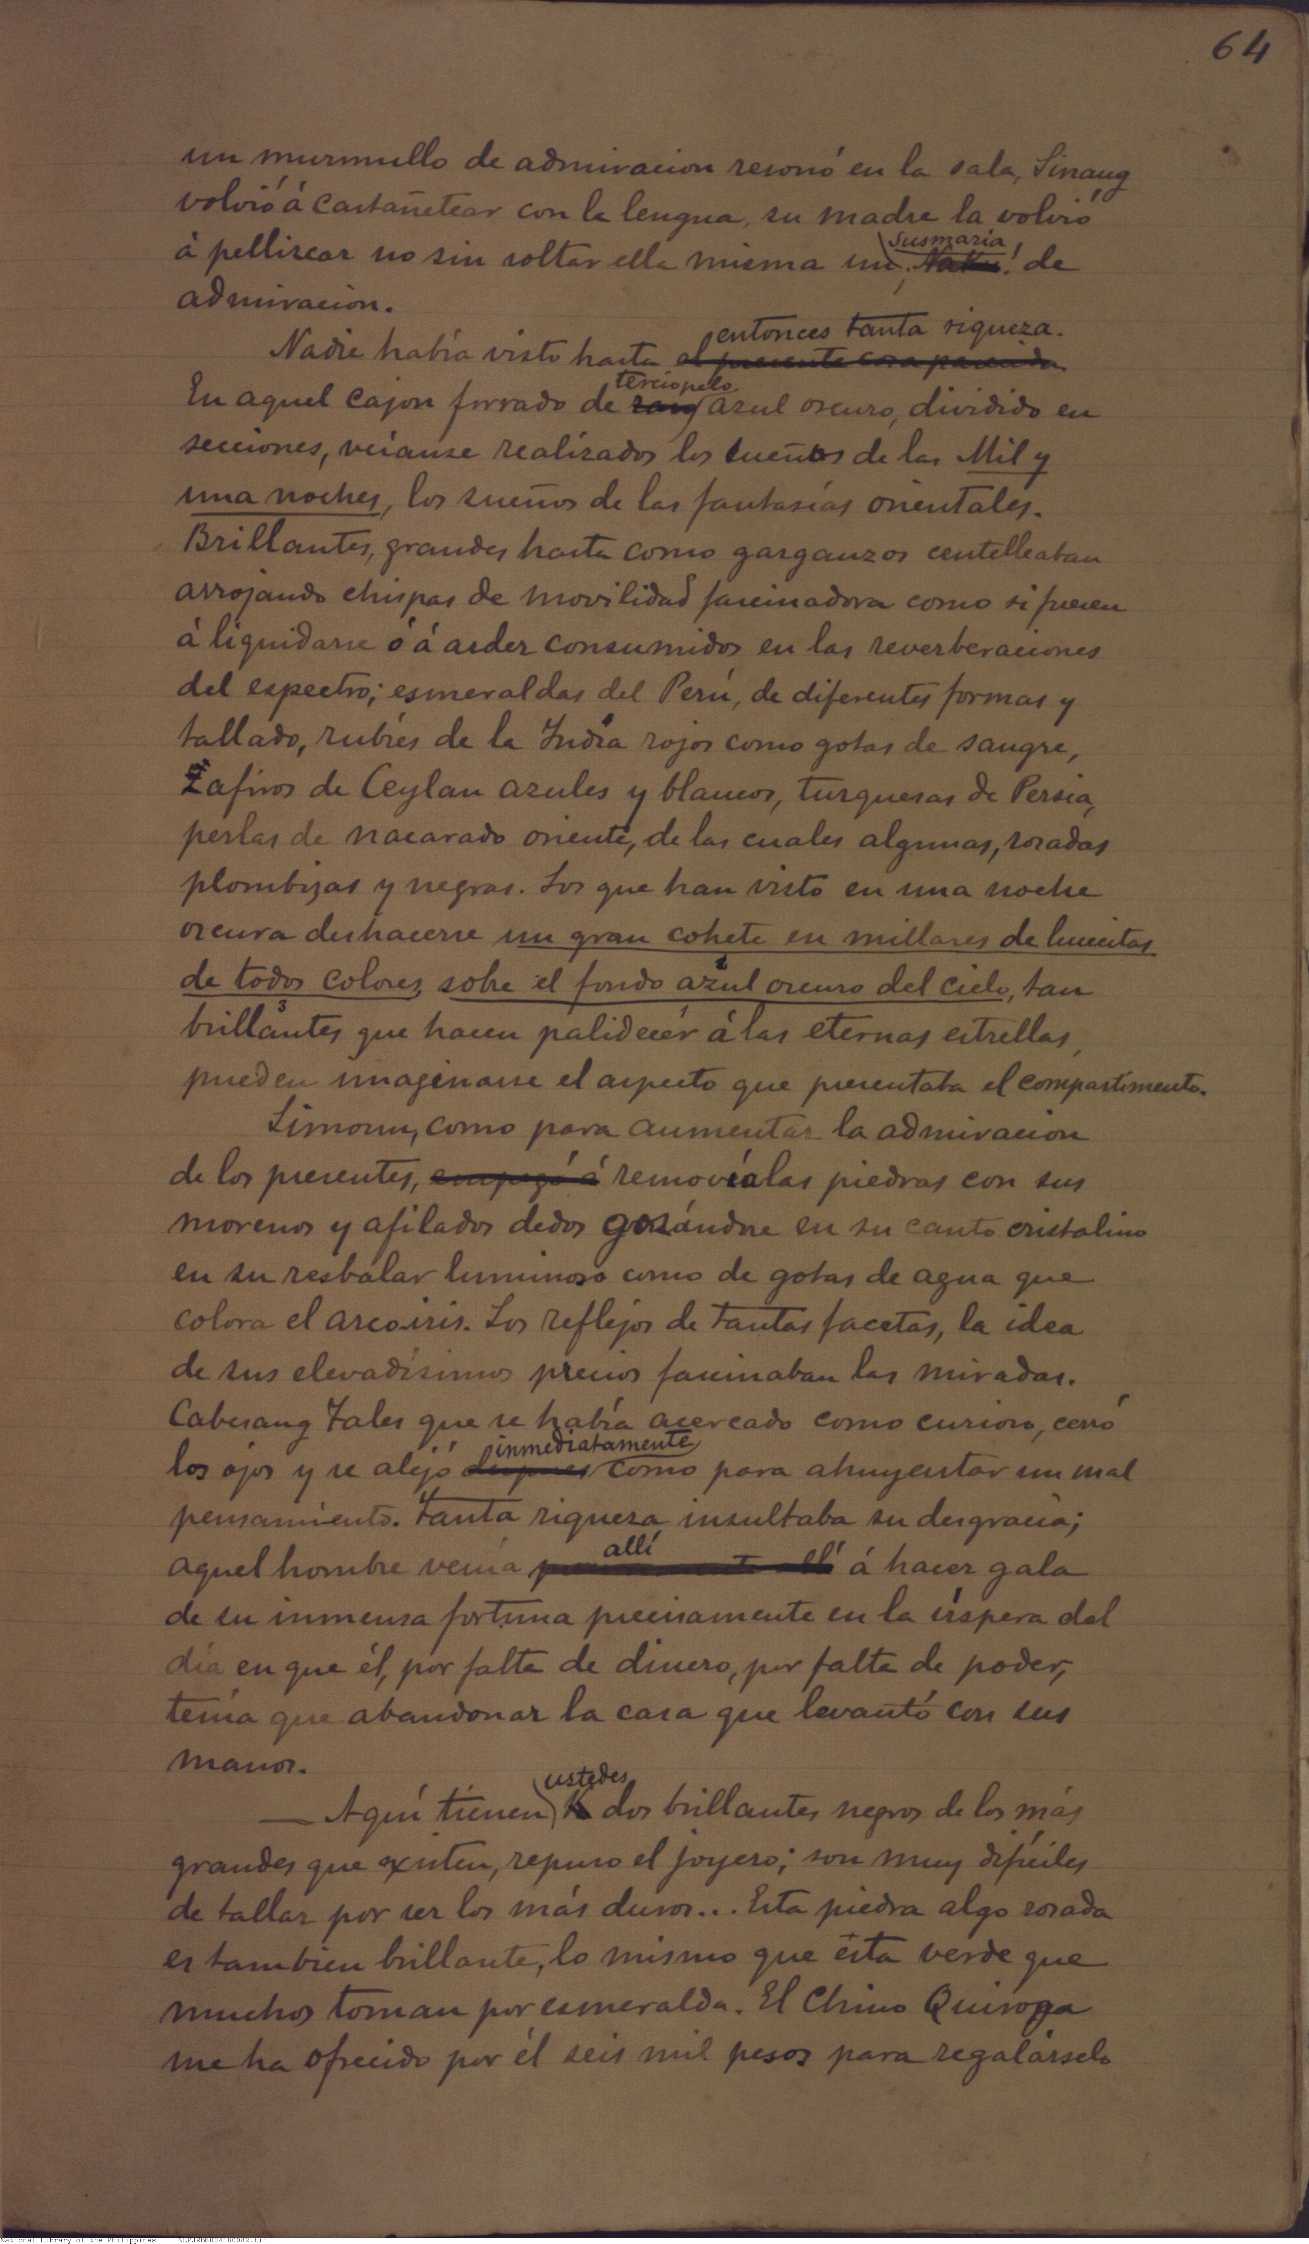 64
un murmullo de admiracion resonó en la sala, Sinang
volvió á castañetear con la lengua, su madre la volvió
susmaria
á pelliscar no sin soltar ella misma un ¡Naku! de
admiracion.
entonces tanta riqueza.
Nadie había visto hasta el presente cosa parecida
terciopelo
En aquel cajon forrado de azul oscuro, dividido en
secciones, veíanse realizados los sueños de las Mil y
una noches, los sueños de las fantasías orientales.
Brillantes, grandes hasta como garganzos centelleaban
arrojando chispas de movilidad fascinadora como si fuesen
á liquidarse ó á arder consumidos en las reverberaciones
del espectro; esmeraldas del Perú, de diferentes formas y
tallado, rubíes de la India rojos como gotas de sangre,
zafiros de Ceylan azules y blancos, turquesas de Persia,
perlas de nacarado oriente, de las cuales algunas, rosadas
plombizas y negras. Los que han visto en una noche
oscura deshacerse un gran cohete en millares de lucecitas
de todos colores, sobre el fondo azul oscuro del cielo, tan
brillantes que hacen palidecér á las eternas estrellas,
pueden imaginarse el aspecto que presentaba el compartimento.
Simoun, como para aumentar la admiracion
de los presentes, empezó á removía las piedras con sus
morenos y afilados dedos gozándose en su canto cristalino
en su resbalar luminoso como de gotas de agua que
colora el arcoiris. Los reflejos de tantas facetas, la idea
de sus elevadísimos precios fascinaban las miradas.
Cabesang Tales que se había acercado como curioso, cerró
inmediatamente
los ojos y se alejó despues como para ahuyentar un mal
pensamiento. Tanta riqueza insultaba su desgracia;
allí
aquel hombre venía á hacer gala
de su inmensa fortuna precisamente en la víspera del
día en que él, por falta de dinero, por falta de poder,
tenía que abandonar la casa que levantó con sus
manos.
ustedes
— Aquí tienen dos brillantes negros de los más
grandes que existen, repuso el joyero; son muy difíciles
de tallar por ser los más duros... Esta piedra algo rosada
es tambien brillante, lo mismo que ésta verde que
muchos toman por esmeralda. El Chino Quiroga
me ha ofrecido por él seis mil pesos para regalárselo